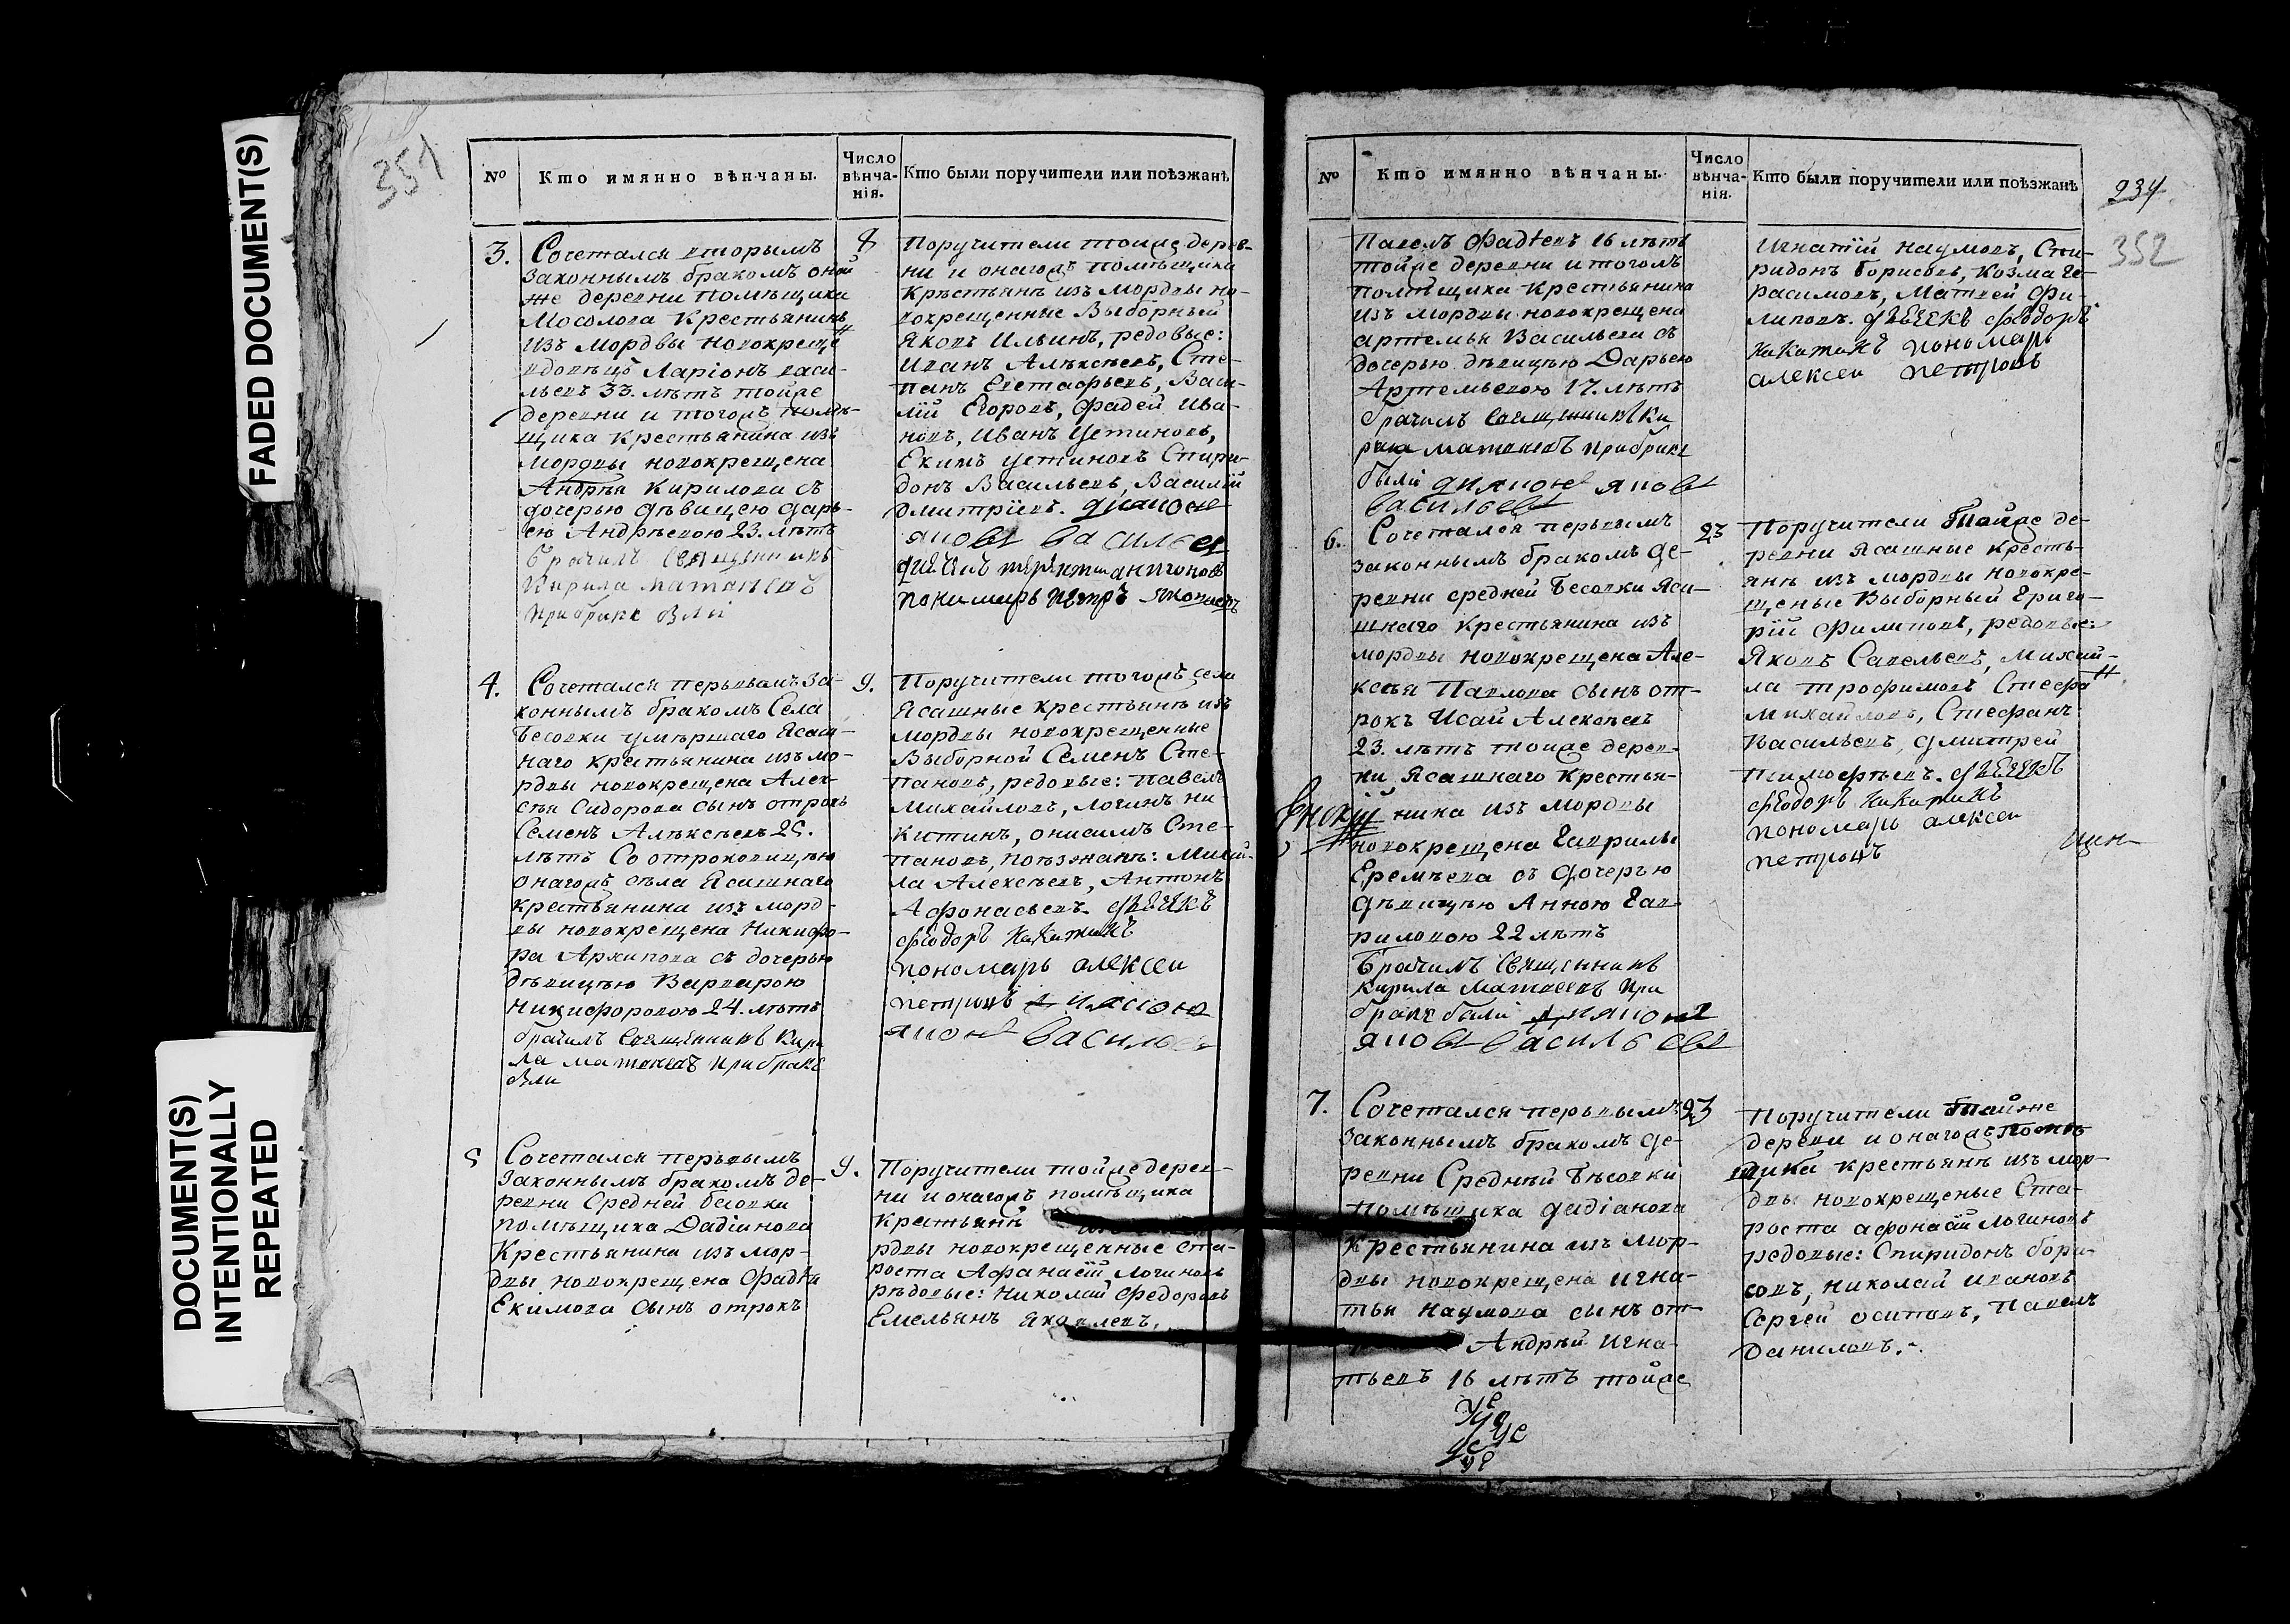 FADED DOCUMENT(S)
DOCUMENT(S)
INTENTIONALLY
REPEATED
351
№
Кто имянно вѣнчаны.
Число
вѣнча-
нія.
Кто были поручители или поѣзжанѣ
3.
Сочетался вторымъ
законнымъ бракомъ оной
же деревни помѣщика
Мосолова Крестьянинъ
изъ мордвы новокреще
вдовецъ Ларіонъ васи-
льевъ 33. лѣтъ тойже
деревни и тогожъ помѣ-
щика крестьянина изъ
мордвы новокрещена
Андрѣя Кирилова съ
дочерью дѣвицею дарь-
ею Андрѣевою 23. лѣтъ
брачилъ священникъ
Кирила матвѣевъ
прибраке были
8
Поручители тойже дерев-
ни и онагожъ помѣщика
крѣстьянѣ изъ мордвы но-
вокрещенные Выборный
Яковъ Ильинъ, редовые:
Иванъ Алѣксѣевъ, Сте-
панъ Евстафьевъ, Васи-
лій Егоровъ, Фадей Ива-
новъ, Иванъ Устиновъ,
Екимъ устиновъ Спири-
донъ Васильевъ, Василій
дмитріевъ. диаконъ
яковъ васильев
пономарь петръ
4.
Сочетался первымъ за-
коннымъ бракомъ Села
Бесовки умѣршаго Ясаш-
наго крестьянина изъ мо-
рдвы новокрещена Алек-
сѣя Сидорова сынъ отрокъ
Семенъ Алѣксѣевъ 25.
лѣтъ Со отроковицѣю
онагожъ сѣла Ясашнаго
крестьянина изъ морд-
вы новокрещена Никифо-
ра Архипова съ дочерью
дѣвицѣю Варварою
никифоровою 24. лѣтъ
брачилъ Священникъ Кири
ла матвеевъ прибраке
были
9.
Поручители тогожъ села
Ясашные крестьянѣ изъ
мордвы новокрещенные
Выборной Семенъ Сте-
пановъ, редовые: павелъ
михайловъ, логинъ ни-
китинъ, онисимъ Сте-
пановъ, поѣзжанѣ: Михай-
ла Алексѣевъ, Антонъ
Афонасьевъ. дьячекъ
фѣодоръ никитинъ
пономарь алексеи
петровъ диаконъ
яковъ васильев
5
Сочетался первымъ
законнымъ бракомъ де-
ревни Средней бесовки
помѣщика Дадіанова
Крестьянина изъ мор-
двы новокрещена Фадѣя
Екимова сынъ отрокъ
9.
Поручители тойже дерев-
ни и онагожъ помѣщика
крестьянѣ
рдвы новокрещенные ста-
роста Афанасій Логиновъ
рѣдовые: николай Федоровъ
Емельянъ Яковлевъ.
№
Кто имянно вѣнчаны.
Число
вѣнча-
нія.
Кто были поручители или поѣзжанѣ
234
352
Павелъ Фадѣевъ 16 лѣтъ
тойже деревни и тогожъ
помѣщика крестьянина
изъ мордвы новокрещена
артемья Васильева съ
досерью дѣвицѣю Дарьею
Артемьевою 17. лѣтъ
брачилъ Священникъ Ки
рила матвеевъ прибраке
были диаконъ яковъ
васильевъ
Игнатій наумовъ, Спи-
ридонъ борисовъ, козма Ге-
расимовъ, Матвей Фи-
липовъ. дьячекъ фѣодоръ
никитинъ пономарь
алексеи петровъ
6.
Сочетался первымъ
законнымъ бракомъ де-
ревни средней Бесовки Яса-
шнаго крестьянина изъ
мордвы новокрещена Але-
ксѣя Павлова сынъ от-
рокъ Исай Алексѣевъ
23. лѣтъ тойже дерев-
ни Ясашнаго крестья-
нина изъ мордвы
новокрещена Гаврилы
Еремѣева съ дочерью
дѣвицѣю Анною Гав-
риловою 22 лѣтъ
брачилъ священникъ
Кирила Матвеевъ при
браке были диаконъ
яковъ васильевъ
23
Поручители тойже де-
ревни Ясашные кресть-
янѣ изъ мордвы новокре-
щеные Выборный Григо-
рій Филиповъ, редовые:
Яковъ Савельевъ, Михай-
ла трофимовъ Стефа
михайловъ, Стефанъ
Васильевъ, дмитрей
тимофѣевъ. дьячекъ
фѣодоръ никитинъ
пономарь алексеи
петровъ
7.
Сочетался первымъ
законнымъ бракомъ де-
ревни Средней Бѣсовки
помѣщика дадіанова
крестьянина изъ мор-
двы новокрещена игна-
тья наумова сынъ от-
Андрѣй игна-
тьевъ 16 лѣтъ тойже
23
Поручители тойже
деревни и онагожъ помѣ
щика крестьянѣ изъ мор-
двы новокрещеные Ста-
роста афонасій логиновъ
редовые: Спиридонъ бори-
совъ, николай ивановъ
Сергей осиповъ, павелъ
данилов.